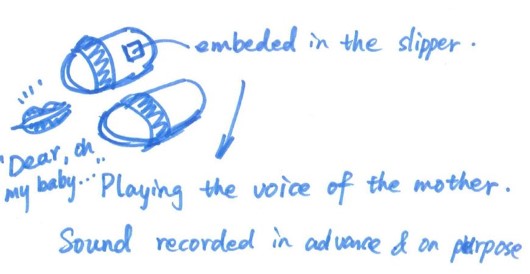 embeded in the slipper.
"Dear, oh
my baby..."
Playing the voice of the mother.
Sound recorded in advance & on purpose